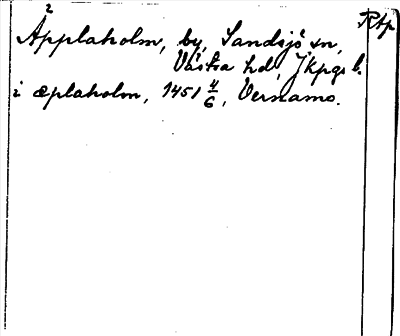 Rtp
2
Äpplaholm, by, Sandsjö sn,
Västra hd, Jkpgs l.
i æplaholm, 1451 4/6, Vernamo.